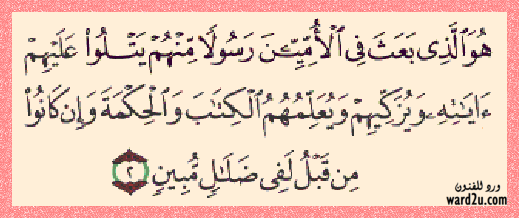 هُوَ ٱلَّذِى بَعَثَ فِى ٱلْأُمِّيِّـۧنَ رَسُولًا مِّنْهُمْ يَتْلُوا۟ عَلَيْهِمْ
ءَايَـٰتِهِۦ وَيُزَكِّيهِمْ وَيُعَلِّمُهُمُ ٱلْكِتَـٰبَ وَٱلْحِكْمَةَ وَإِن كَانُوا۟
مِن قَبْلُ لَفِى ضَلَـٰلٍ مُّبِينٍ ٢
ورد للفنون
ward2u.com